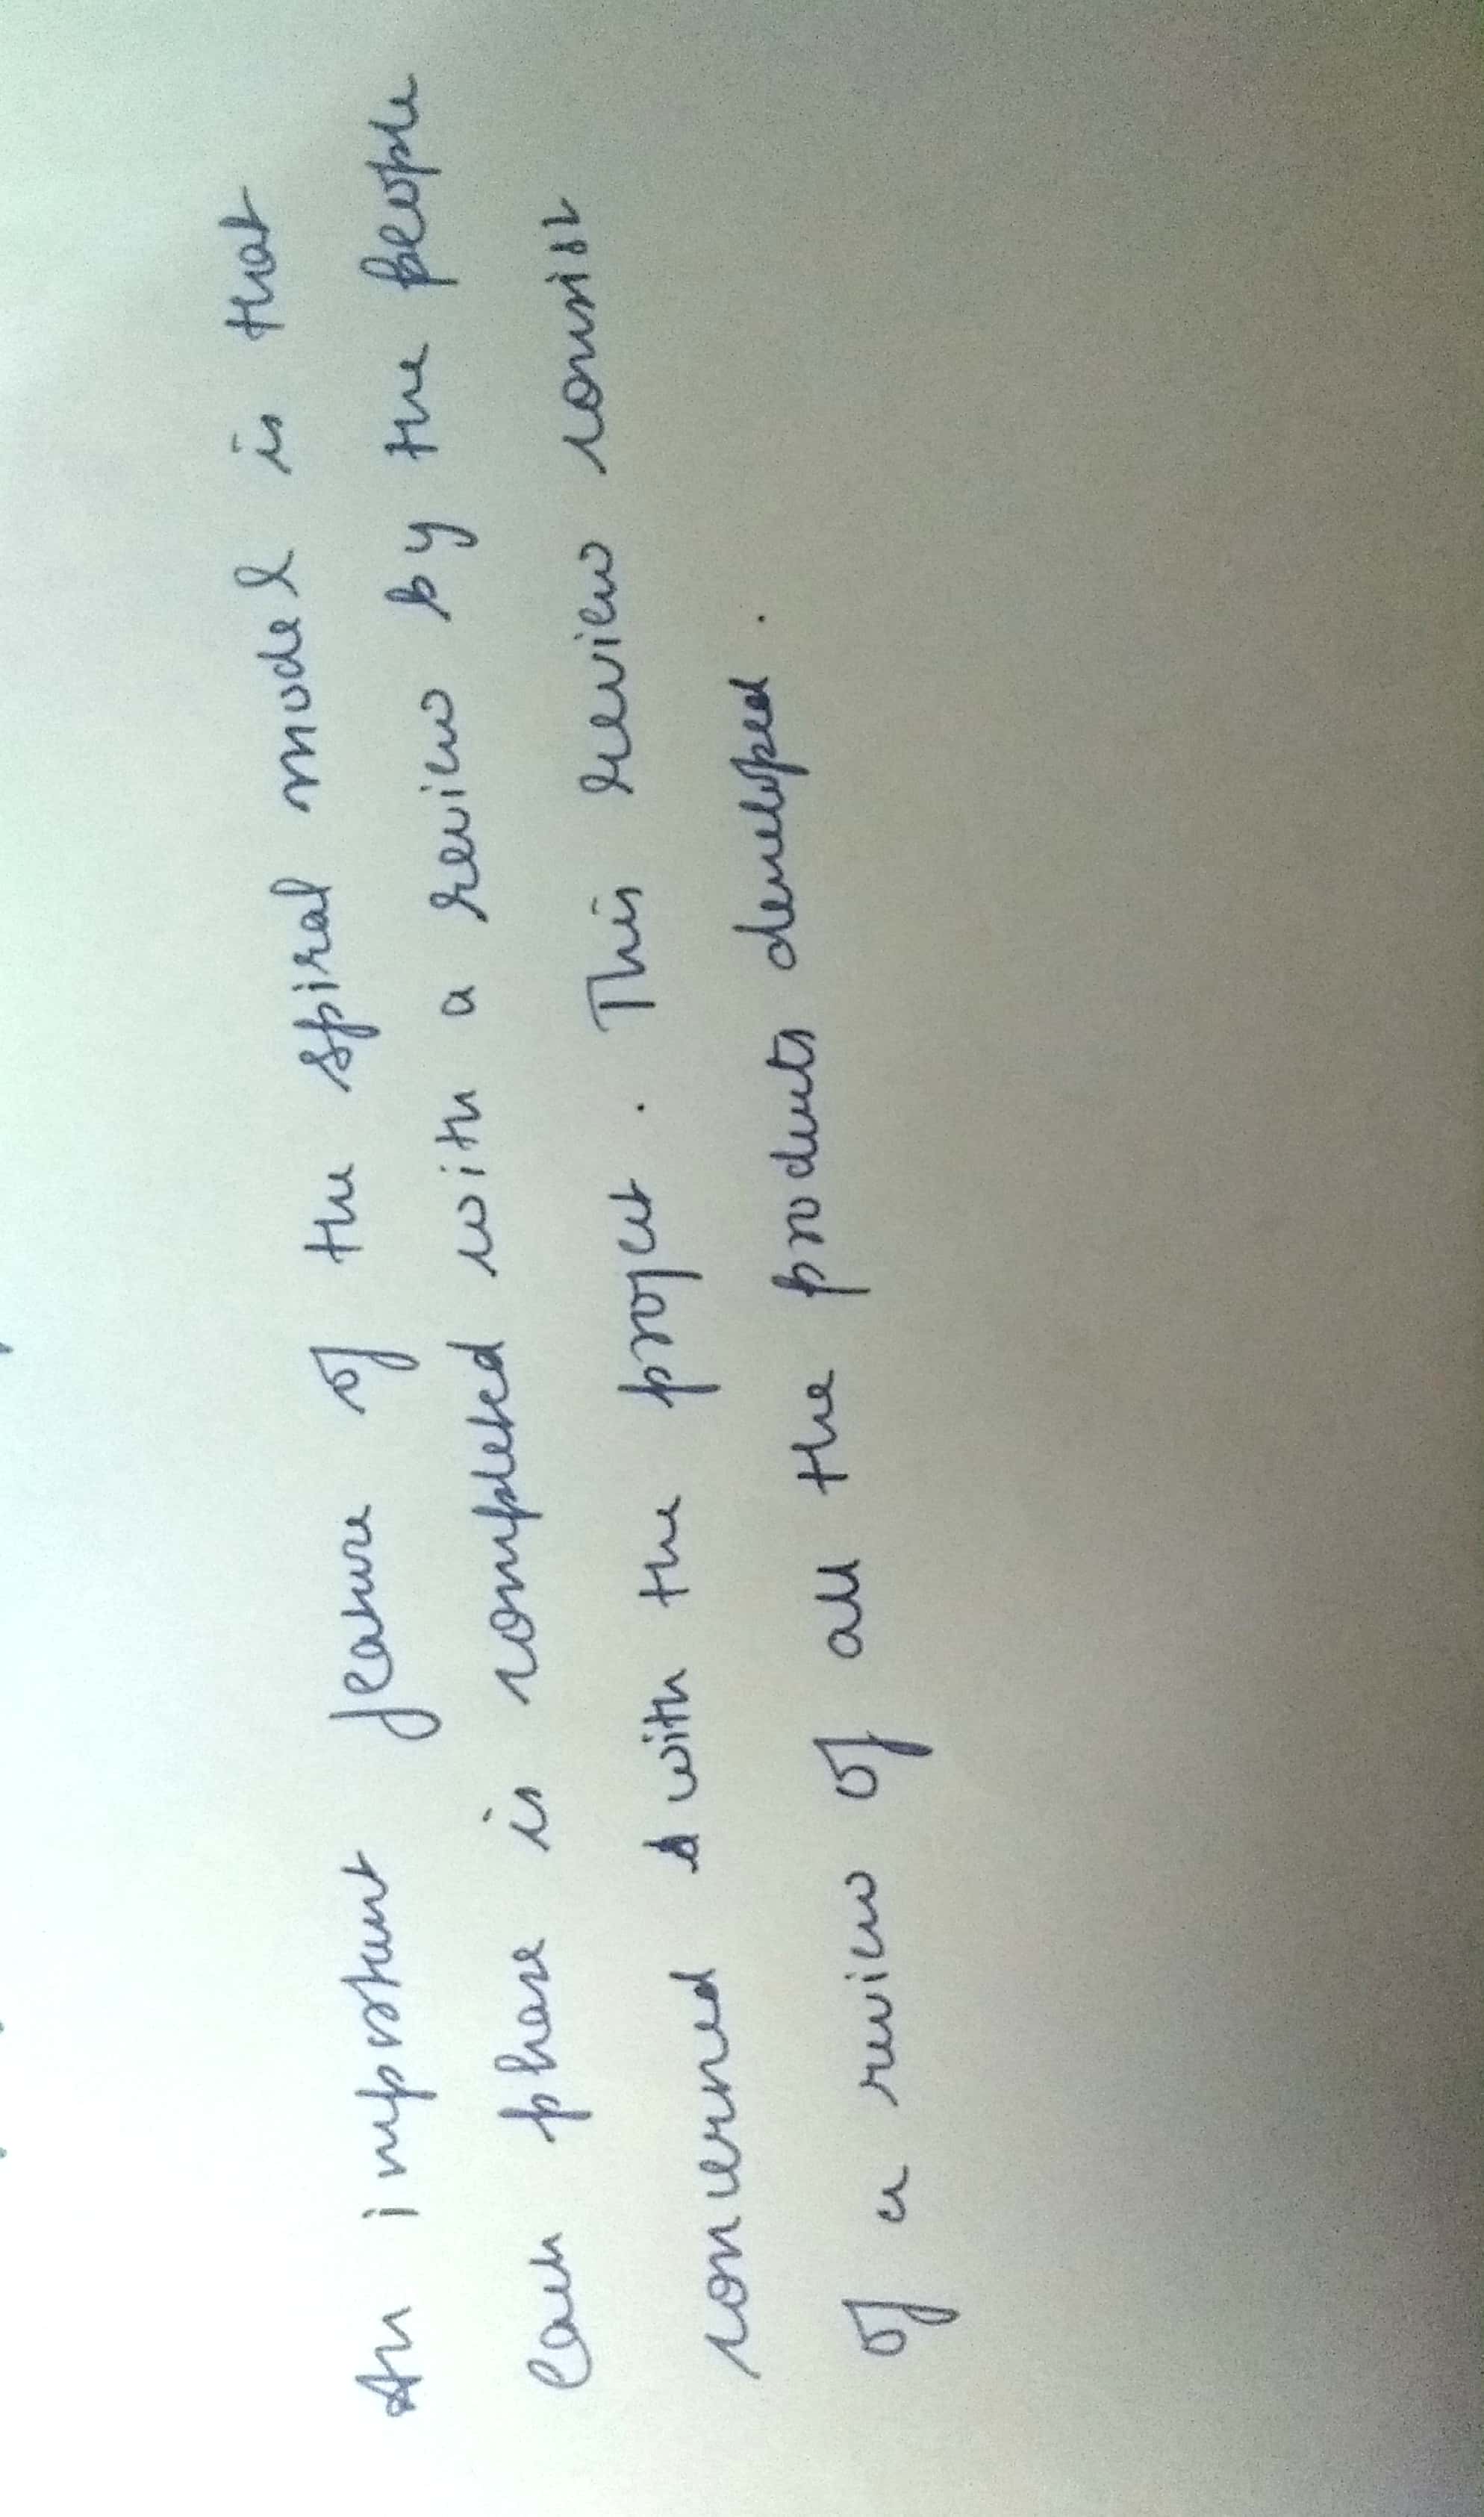 An important feature of the spiral model is that
each phase is completed with a review by the people
concerned with the project. This review consist
of a review of all the products developed.